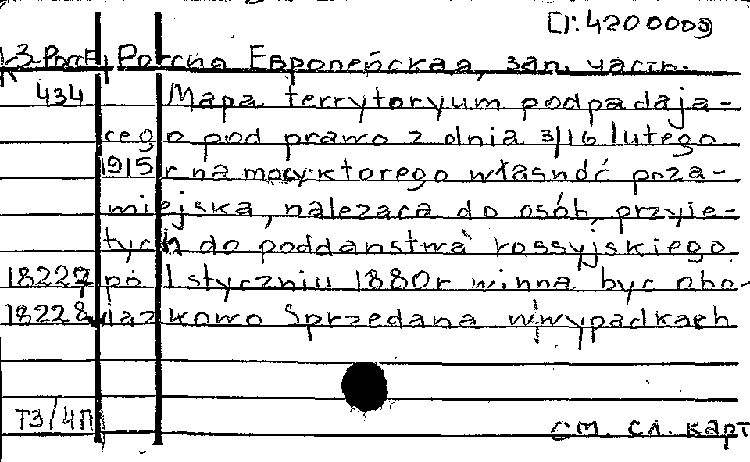 4200009
Россия Европейская, зап. часть.
434 Mapa terrytoryum podpadaja-
cego pod prawo z dnia 3/16 lutego
1915 r na mocy ktorego własność poza-
miejska, należaca do osób, przyię-
tych do poddaństwa rossyjskiego
18227 po 1 styczniu 1880r winna być obo-
18228 wiazkowo sprzedana w wypadkach
ТЗ/4П см. сл. карт